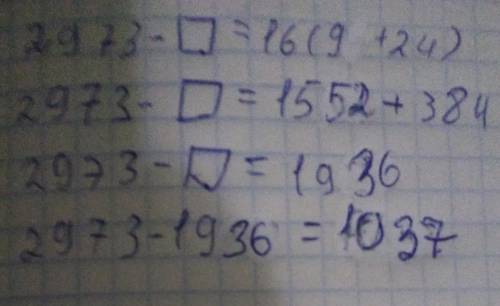 2973-□=16(9 +24)
2973-□=1552+384
2973-□=1936
2973-1936=1037